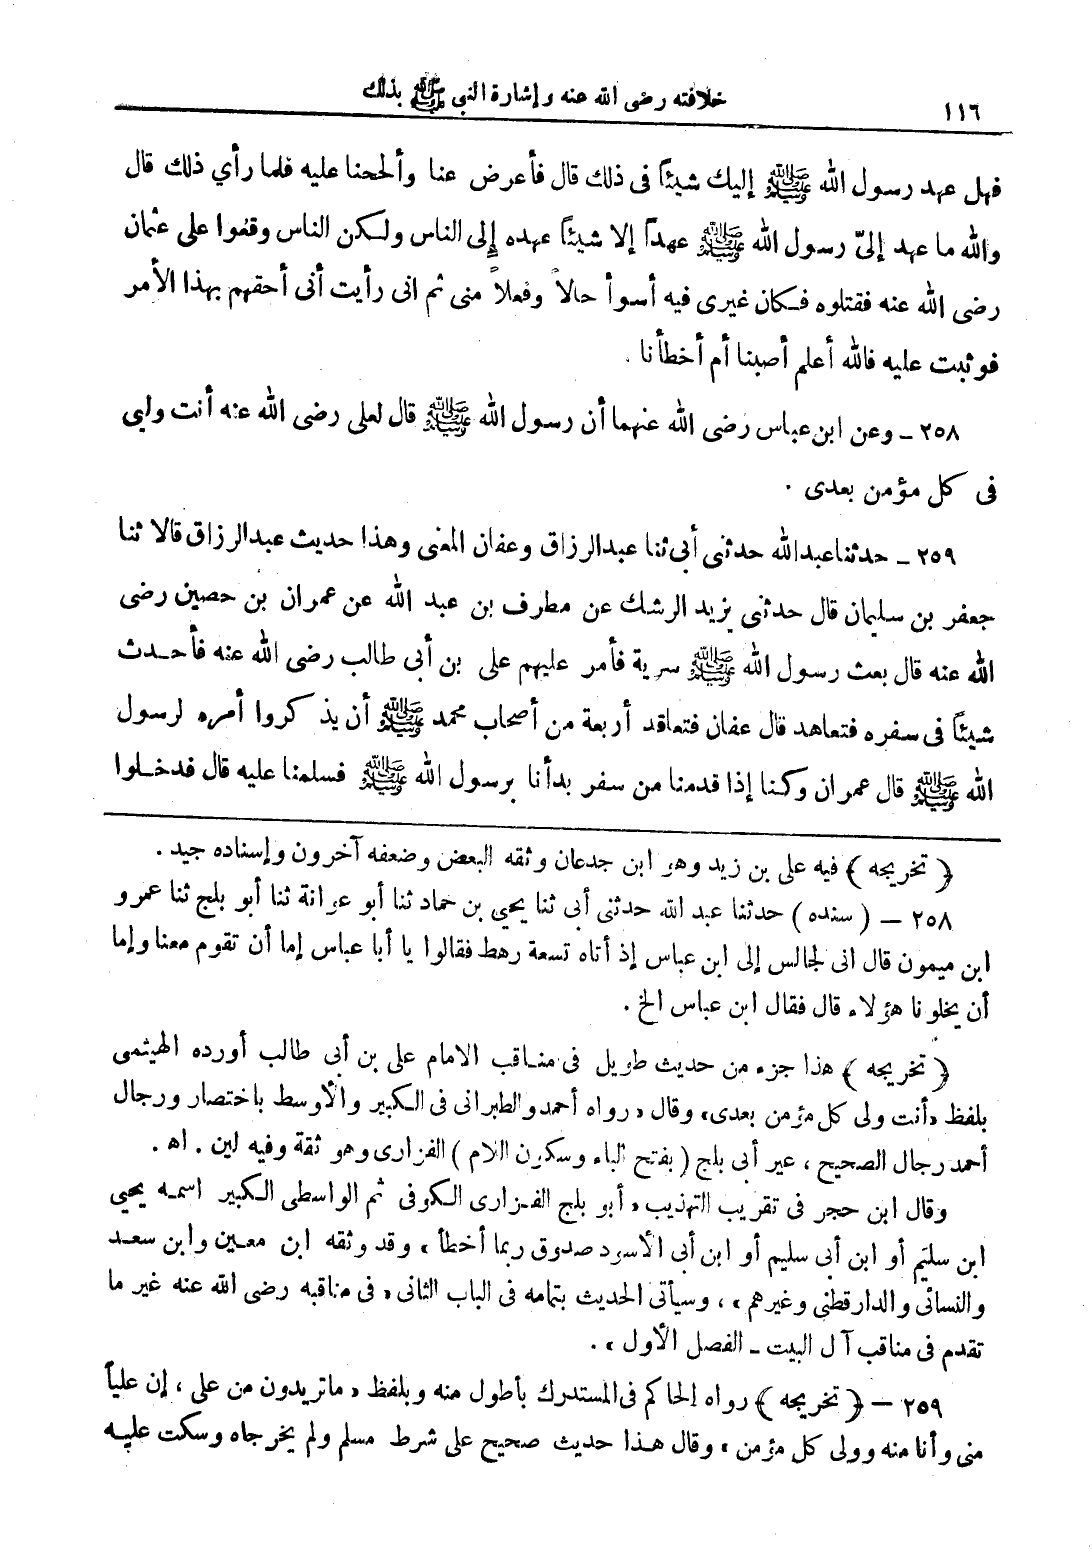 ١١٦
خلافته رضى الله عنه وإشارة النبى ﷺ بذلك
فهل عهد رسول الله ﷺ إليك شيئاً فى ذلك قال فأعرض عنا وألححنا عليه فلما رأي ذلك قال
والله ما عهد إلىّ رسول الله ﷺ عهداً إلا شيئاً عهده إلى الناس ولكن الناس وقعوا على عثمان
رضى الله عنه فقتلوه فكان غيرى فيه أسوأ حالاً وفعلاً منى ثم انى رأيت أنى أحقهم بهذا الأمر
فوثبت عليه فالله أعلم أصبنا أم أخطأنا .
٢٥٨ ـ وعن ابن عباس رضى الله عنهما أن رسول الله ﷺ قال لعلى رضى الله عنه أنت وليى
فى كل مؤمن بعدى .
٢٥٩ ـ حدثنا عبدالله حدثنى أبى ثنا عبدالرزاق وعفان المعنى وهذا حديث عبدالرزاق قالا ثنا
جعفر بن سليمان قال حدثنى يزيد الرشك عن مطرف بن عبد الله عن عمران بن حصين رضى
الله عنه قال بعث رسول الله ﷺ سرية فأمر عليهم على بن أبى طالب رضى الله عنه فأحدث
شيئاً فى سفره فتعاهد قال عفان فتعاقد أربعة من أصحاب محمد ﷺ أن يذكروا أمره لرسول
الله ﷺ قال عمران وكنا إذا قدمنا من سفر بدأنا برسول الله ﷺ فسلمنا عليه قال فدخلوا
﴿ تخريجه ﴾ فيه على بن زيد وهو ابن جدعان وثقه البعض وضعفه آخرون وإسناده جيد .
٢٥٨ – ( سنده ) حدثنا عبد الله حدثنى أبي ثنا يحي بن حماد ثنا أبو عوانة ثنا أبو بلج ثنا عمرو
ابن ميمون قال انى لجالس إلى ابن عباس إذ أتاه تسعة رهط فقالوا يا أبا عباس إما أن تقوم معنا وإما
أن يخلونا هؤلاء قال فقال ابن عباس الخ .
﴿ تخريجه ﴾ هذا جزء من حديث طويل فى مناقب الامام على بن أبي طالب أورده الهيثمى
بلفظ «أنت ولى كل مؤمن بعدى» وقال «رواه أحمد والطبرانى فى الكبير والأوسط باختصار ورجال
أحمد رجال الصحيح ، غير أبي بلج ( بفتح الباء وسكون اللام ) الفزارى وهو ثقة وفيه لين . اه .
وقال ابن حجر فى تقريب التهذيب «أبو بلج الفزارى الكوفى ثم الواسطى الكبير اسمه يحيي
ابن سليم أو ابن أبى سليم أو ابن أبى الأسود صدوق ربما أخطأ» وقد وثقه ابن معين وابن سعد
والنسائى والدارقطنى وغيرهم» ، وسيأتى الحديث بتمامه فى الباب الثانى « فى مناقبه رضى الله عنه غير ما
تقدم فى مناقب آل البيت ـ الفصل الأول » .
٢٥٩ – ﴿ تخريجه ﴾ رواه الحاكم فى المستدرك بأطول منه وبلفظ « ماتريدون من على ، إن علياً
منى وأنا منه وولى كل مؤمن » وقال هذا حديث صحيح على شرط مسلم ولم يخرجاه وسكت عليه